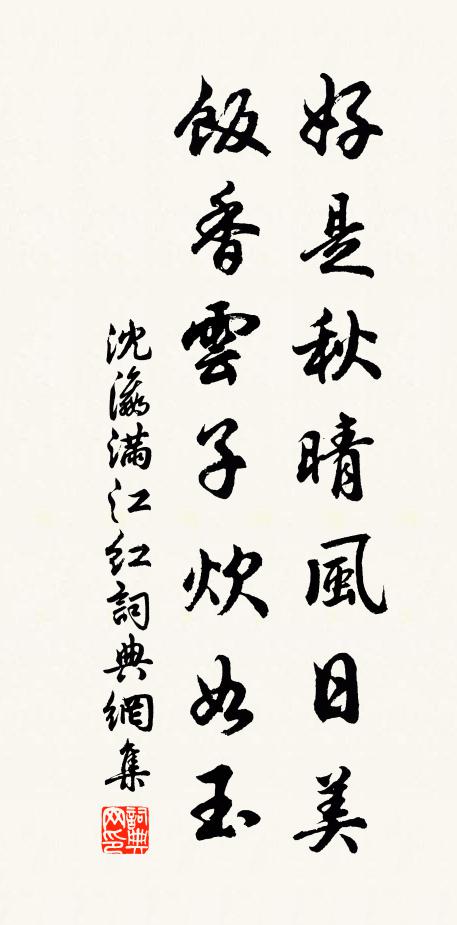 好是秋晴風日美
飯香雲子炊如玉
沈瀛滿江紅詞典網集
詞典网印